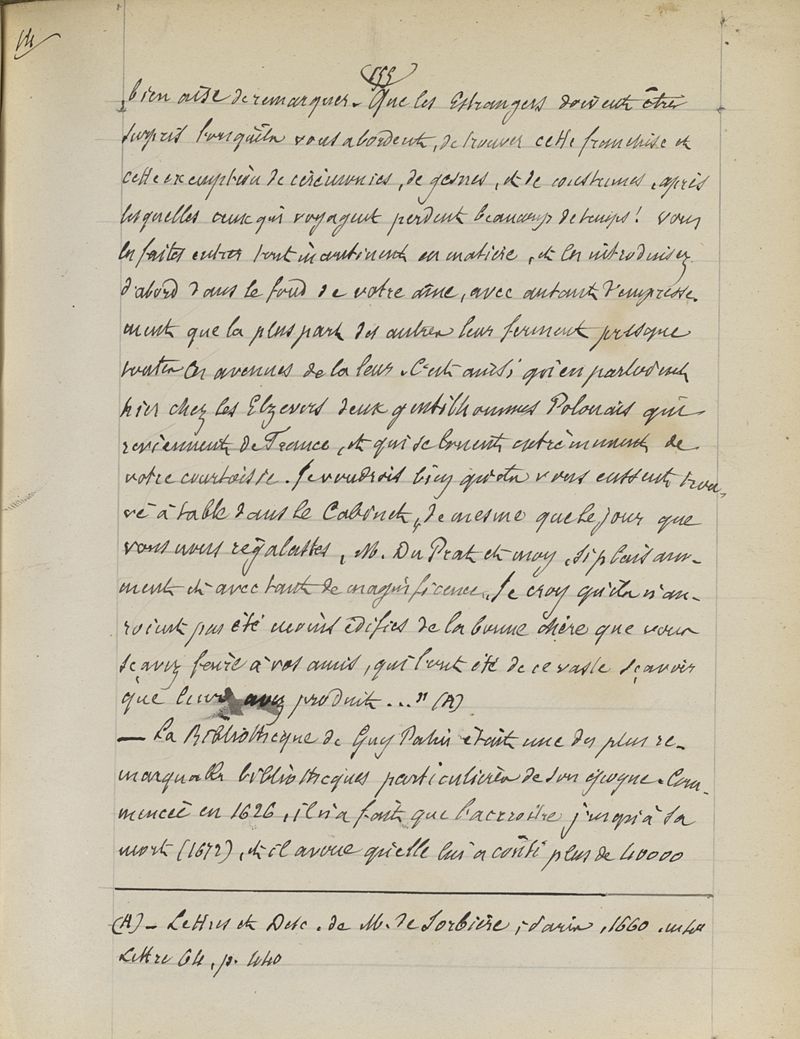 155
bien aise de remarquer. Que les Estrangers doivent être
surpris lorsqu'ils vous abordent, de trouver cette franchise et
cette exemption de cérémonies, de gesnes, et de coustumes, après
lesquelles ceux qui voyagent perdent beaucoup de temps! Vous
les faites entrer tout incontinent en matière, et les introduisez
d'abord dans le fond de votre âme, avec autant d'empresse-
ment que la plus part des autres leur ferment presque
toutes les avenues de la leur. C'est ainsi qu'en parloient
hier chez les Elzevers deux gentilhommes Polonais qui
reviennent de France, et qui se louent extrèmement de
votre courtoisie. Je voudrois bien qu'ils vous eussent trou-
vé à table dans le Cabinet, de mesme que le jour que
vous nous régalastes, M. Du Prat et moy, si plaisam-
ment et avec tant de magnificence. Je croy qu'ils n'au-
roient pas été moins édifiés de la bonne chère que vous
sçavez faire à vos amis, qu'ils ont été de ce vaste sçavoir
que leur avez produit..." (A)
— La Bibliothèque de Guy Patin était une des plus re-
marquables bibliothèques particulières de son époque. Com-
mencée en 1626, il n'a fait que l'accroître jusqu'à sa
mort (1672), et il avoue qu'elle lui a coûté plus de 40000
(A) — Lettres et Disc. de M. de Sorbière, Paris, 1660. in 4º
Lettre 64, p. 440